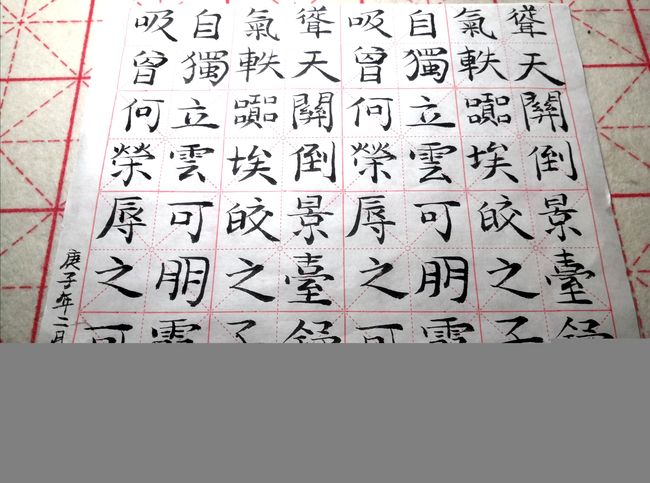 聳天關倒景臺
氣軼囂埃皎之子
自獨立雲可朋
吸曾何榮辱之可
聳天關倒景臺
氣軼囂埃皎之子
自獨立雲可朋
吸曾何榮辱之可
庚子年二月